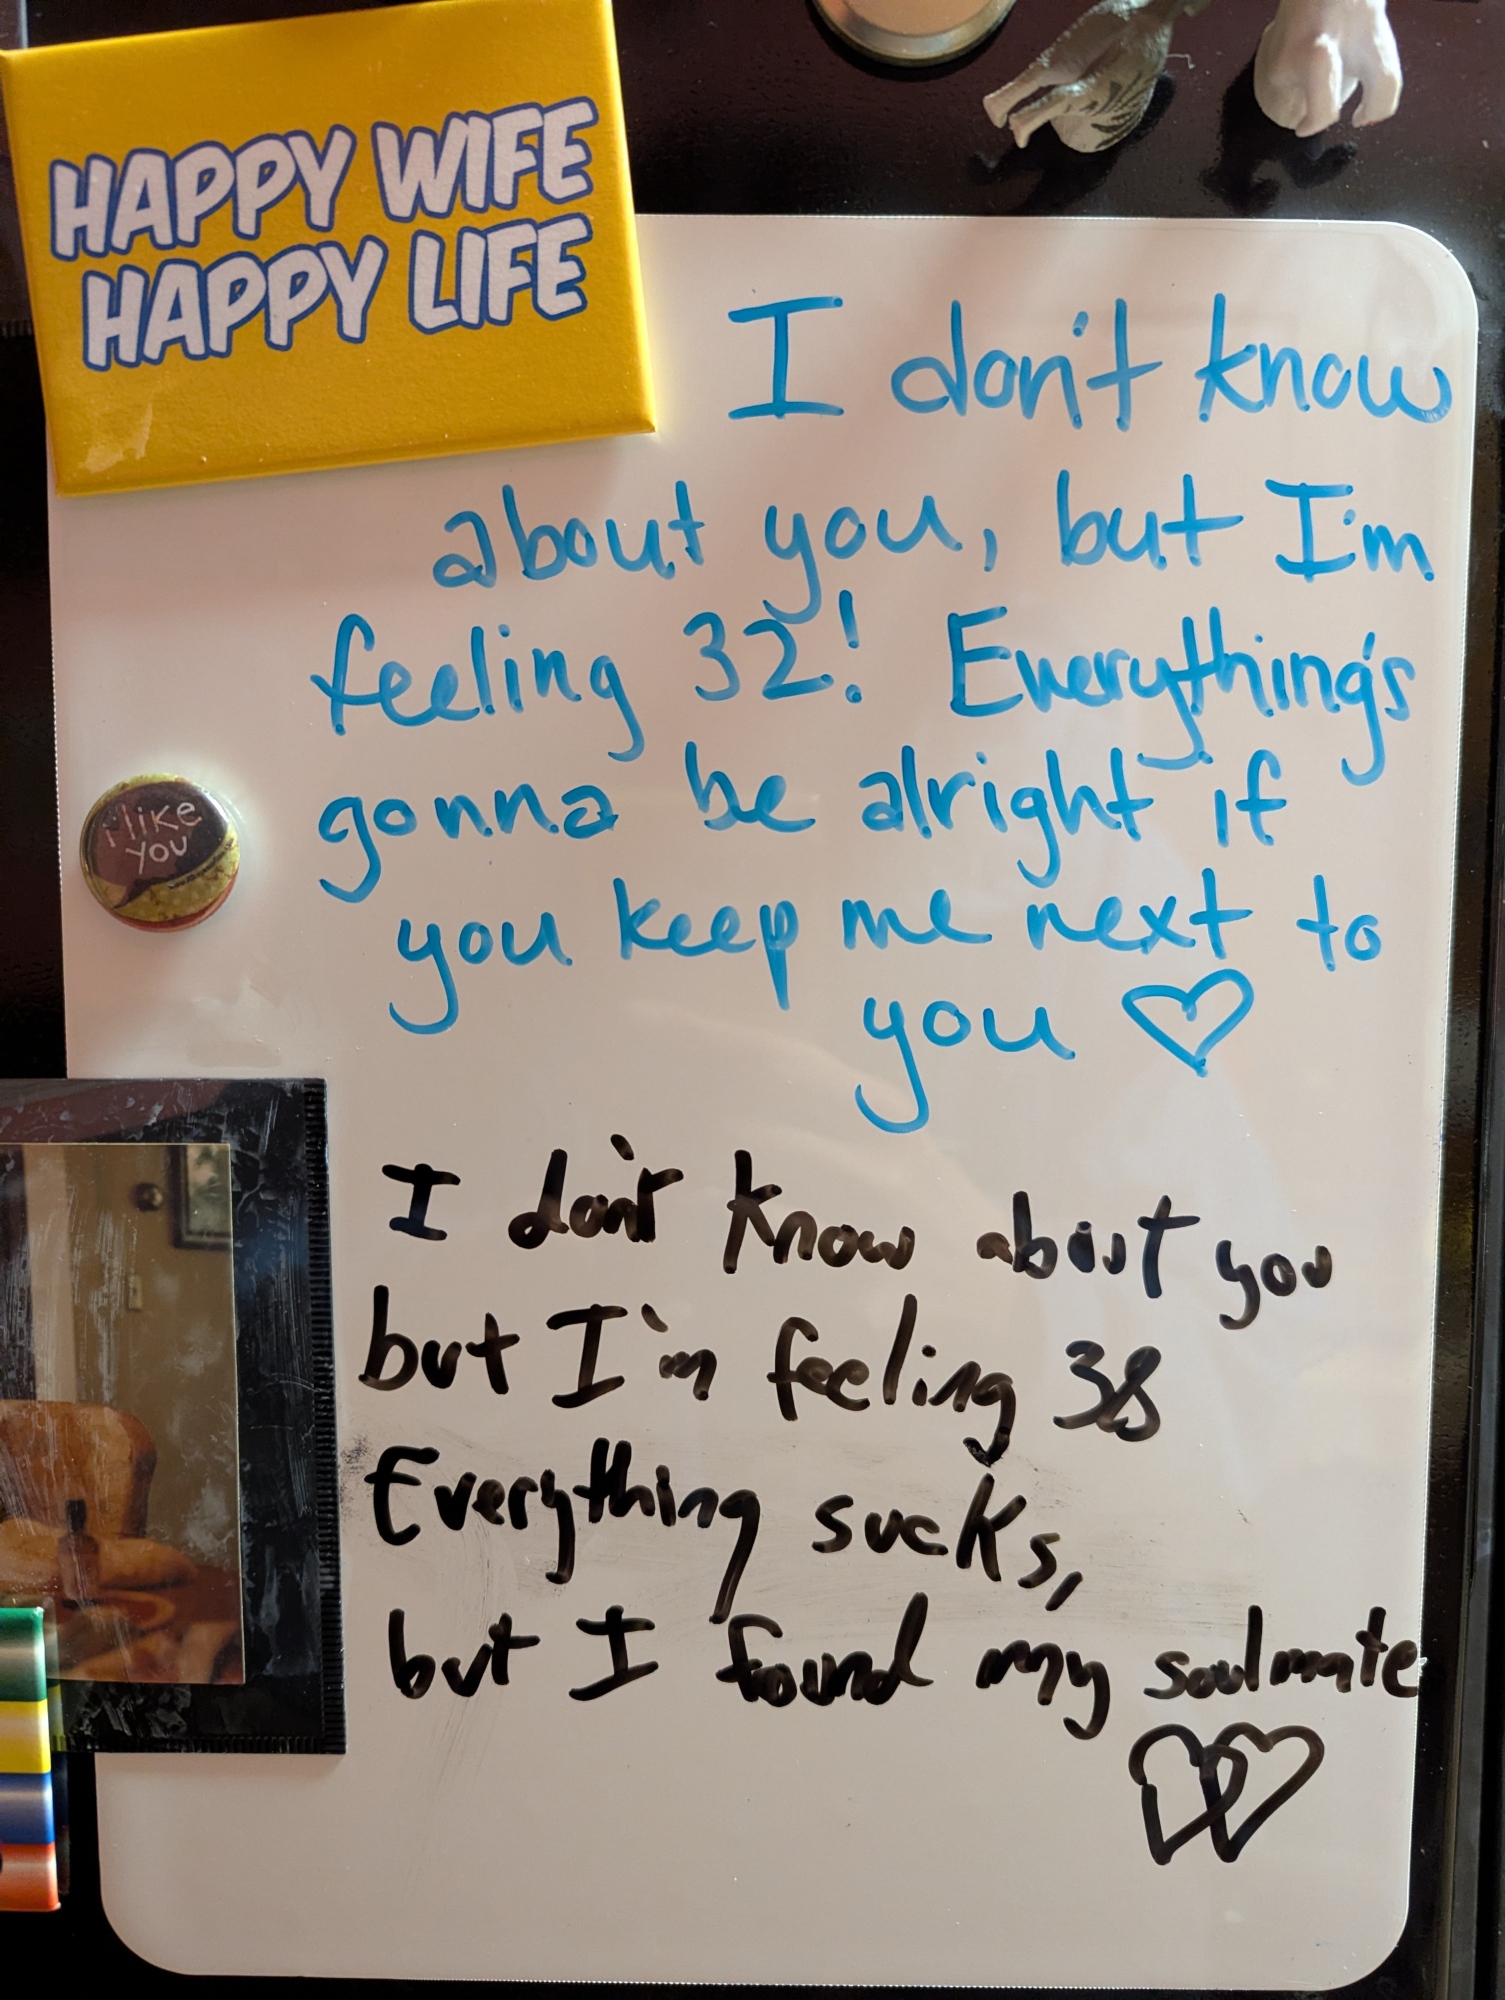 HAPPY WIFE
HAPPY LIFE
I don't know
about you, but I'm
feeling 32! Everything's
gonna be alright if
you keep me next to
you ♡
i like
you
I don't know about you
but I'm feeling 38
Everything sucks,
but I found my soulmate